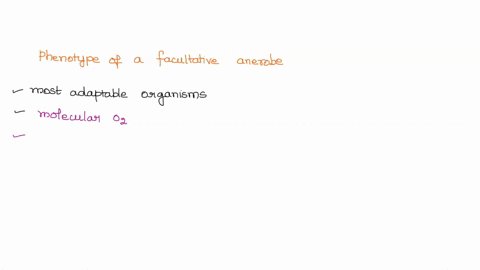 Phenotype of a facultative anerobe
✓ most adaptable organisms
✓ molecular O₂
✓